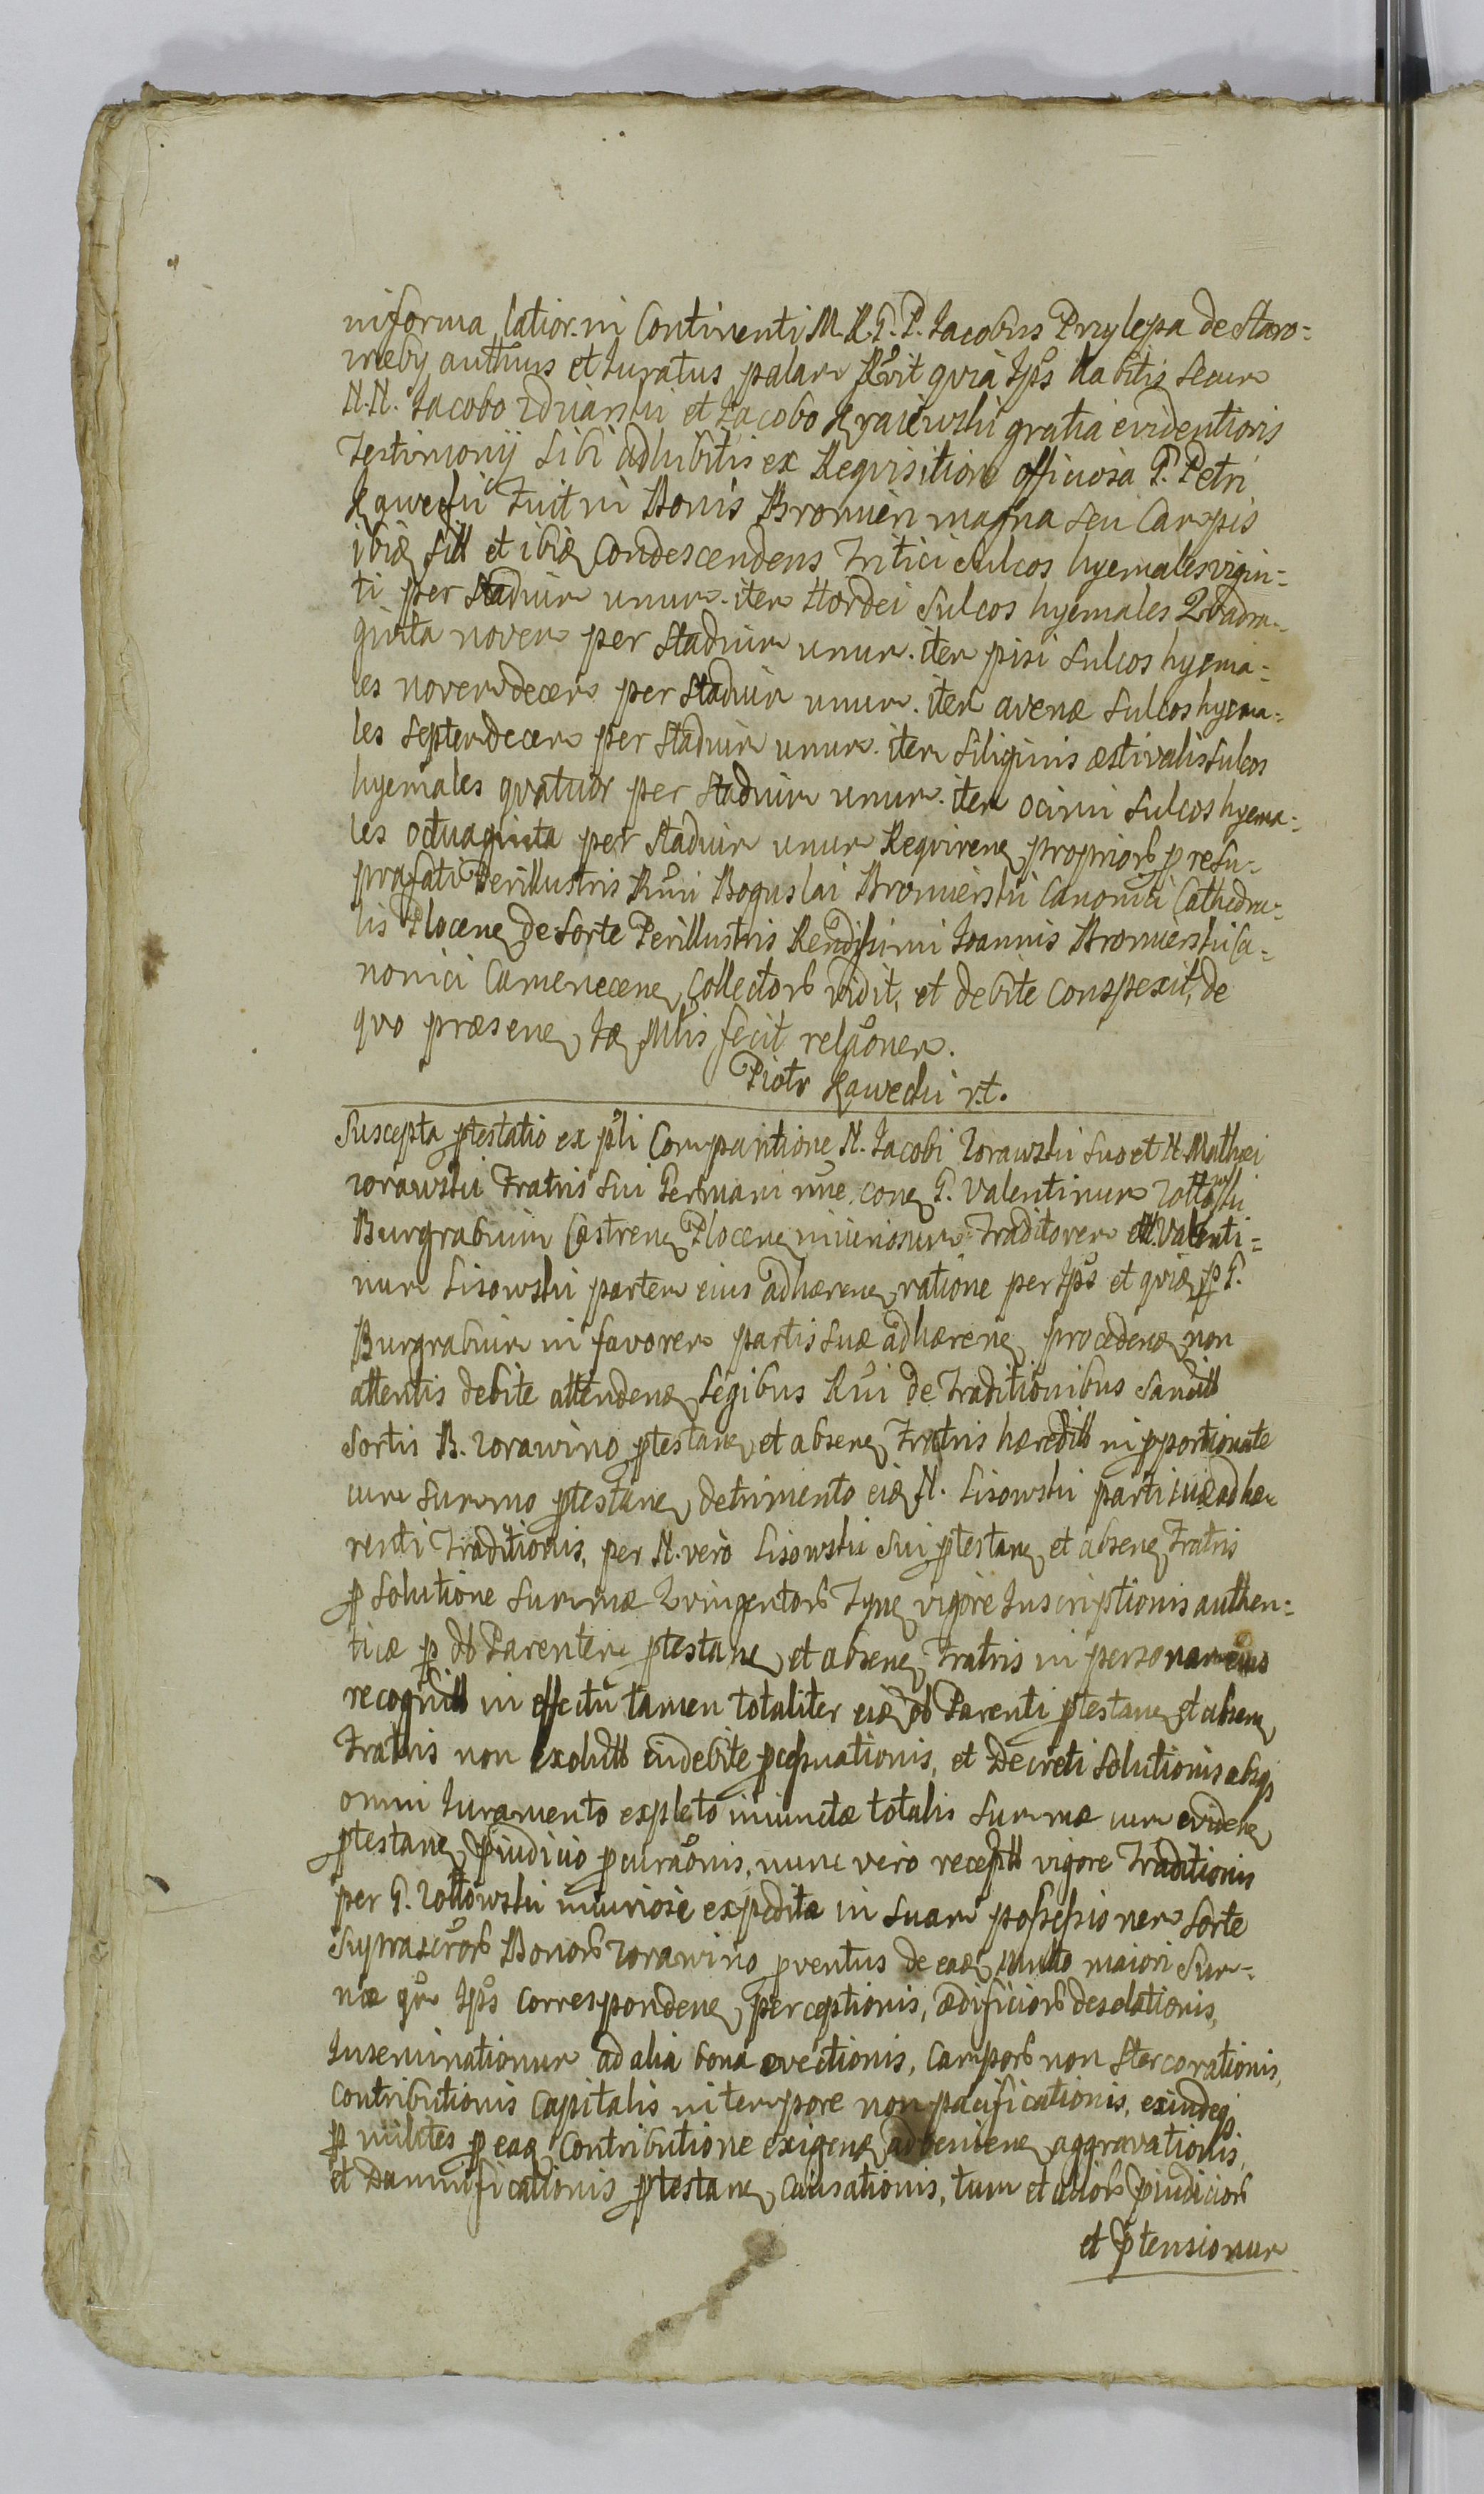 in forma latior. in Continenti M. R. G. P. Jacobus Przylepa de Staro=
wreby auth̃us et Juratus palam Rvit quia Jps habitis Secum
N.N. Jacobo Zdviarski et Jacobo Krajewski gratia evidentioris
Testimonij Sibi adhibitis ex Requisitione officiosa G. Petri
Kawecki fuit in Bonis Bromierz magna seu Campis
ibiq sitt et ibiq Condescendens Tritici Sulcos hyemales vigin=
ti per Stadium unum. item Hordei Sulcos hyemales Quadra=
ginta novem per Stadium unum. item pisi Sulcos hyema=
les novemdecem per Stadium unum. item avenæ Sulcos hyema=
les Septemdecem per Stadium unum. item Siliginis æstivalis Sulcos
hyemales qvatuor per Stadium unum. item ocimi Sulcos hyema=
les octuaginta per Stadium unum Reqviren propriorb p resu=
præfati Perillustris Rñdi Boguslai Bromierski Canonici Cathedra=
lis Plocen de Sorte Perillustris Rendissimi Joannis Bromierski Ca=
nonici Camenecen, Collectorb vidit, et debite Conspexit, de
qvo præsen Ja Mtis fecit relãonem.
Piotr Kawecki r.t.
Suscepta ptestatio ex pli Comparitione N. Jacobi Zorawski Suo et N. Mathæi
Zorawski Fratris Sui Germani nñe con G. Valentinum Zottowski
Burgrabium Castren Plocen iniuriosum Traditorem et N. Valenti=
num Lisowski partem eius adhæren ratione per Jps et qviæ p G.
Burgrabium in favorem partis Suæ adhæren proceden non
attentis debite attenden Legibus Rñi de Traditionibus Sancitt
Sortis B. Zorawino ptestan et absen Fratris hæreditt inpportionate
cum Summo ptestan detrimento eiæ N. Lisowski parti Suæ adhæ
renti Traditionis, per N. vero Lisowski Sui ptestan et absen Fratris
p Solutione Summæ Qvingentorb Fypn vigore Inscriptionis authen=
ticæ p ob Parentem ptestan et absen Fratris in personam eius
recognitt in effectũ tamen totaliter eiæ ob Parenti ptestan et absen
Fratris non exolutt indebite pcqnationis, et Decreti Solutionis absq
omni Juramento expleto iniunctæ totalis Summæ cum eviden
ptestan Piudicio pcurãonis, nunc vero receptt vigore Traditionis
per G. Zottowski iniuriose expeditæ in Suam possessionem Sorte
Suprascrorb Bonorb Zorawino pventus de eaæ multo maiori Sum=
mæ qm Jps Corresponden perceptionis, ædificiorb desolationis,
Inseminationum ad alia bona evectionis, Camporb non Stercorationis,
Contributionis Capitalis in tempore non pacificationis, exindeq
p milites p eaq Contributione exigen advenien aggravationis,
et Damnificationis ptestan Causationis, tum et aliorb Piudiciorb
et Ptensionum